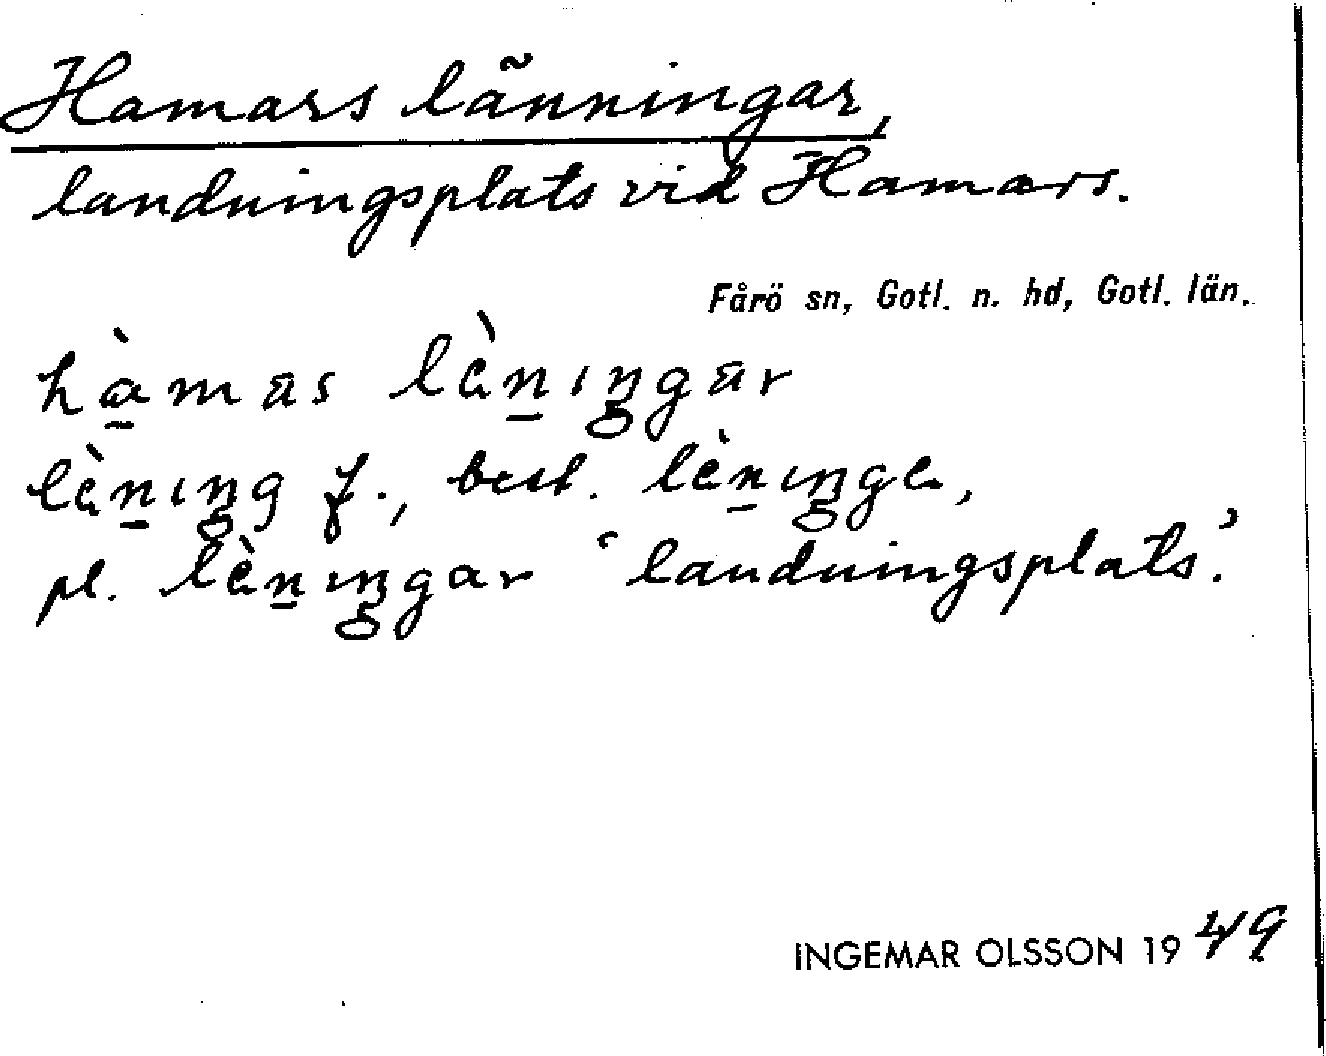 Hamars länningar,
landningsplats vid Hamars.
Fårö sn, Gotl. n. hd, Gotl. län.
hàmas lèningar
lèning f., best. lèninge,
pl. lèningar ‘landningsplats’.
INGEMAR OLSSON 1949